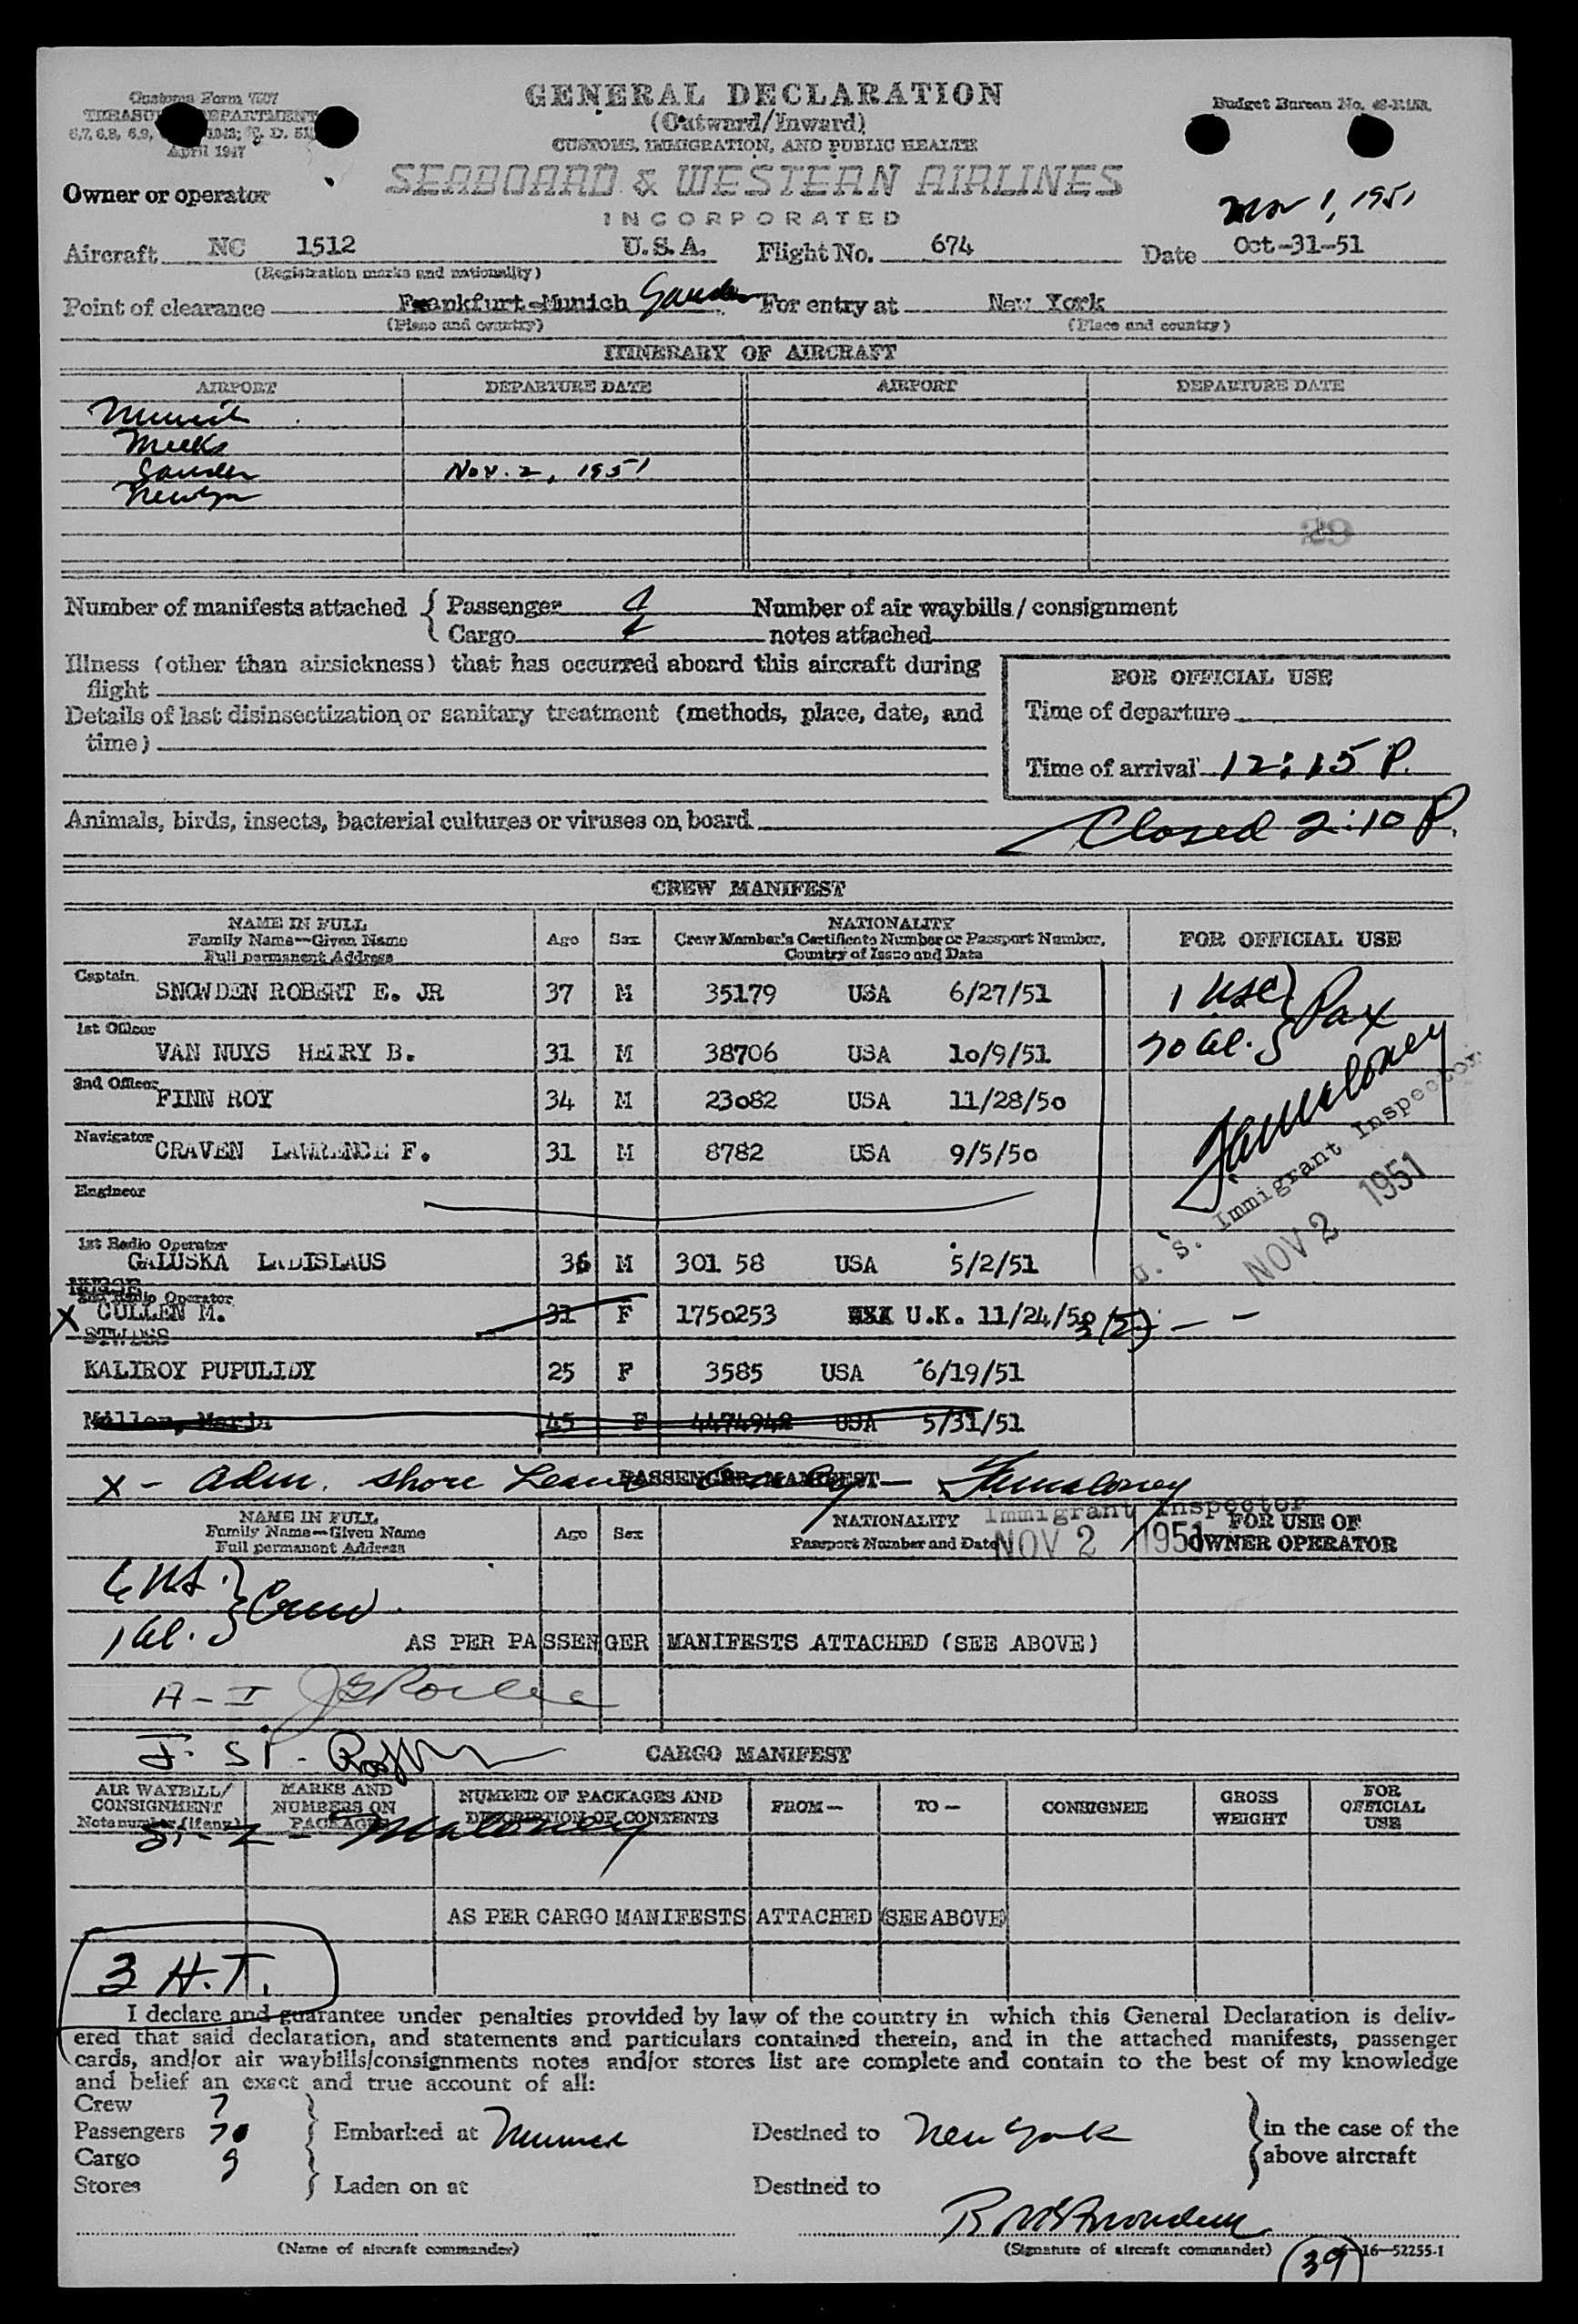 Customs Form 7507
TREASURY DEPARTMENT
April 1947
GENERAL DECLARATION
(Outward/Inward)
CUSTOMS, IMMIGRATION, AND PUBLIC HEALTH
Budget Bureau No.
SEABOARD & WESTERN AIRLINES
INCORPORATED
Owner or operator
Nov 1, 1951
Aircraft NC 1512 U.S.A. Flight No. 674 Date Oct-31-51
(Registration marks and nationality)
Point of clearance Frankfurt-Munich Gander For entry at New York
(Place and country) (Place and country)
ITINERARY OF AIRCRAFT
AIRPORT DEPARTURE DATE AIRPORT DEPARTURE DATE
Munich
Meeks
Gander Nov. 2, 1951
New York
29
Number of manifests attached { Passenger Number of air waybills / consignment
Cargo notes attached
Illness (other than airsickness) that has occurred aboard this aircraft during
flight
FOR OFFICIAL USE
Details of last disinsectization or sanitary treatment (methods, place, date, and
time)
Time of departure
Time of arrival 12:15 P.
Animals, birds, insects, bacterial cultures or viruses on board
Closed 2:10 P.
CREW MANIFEST
NAME IN FULL
Family Name—Given Name
Full permanent Address
Age Sex
NATIONALITY
Crew Member's Certificate Number or Passport Number,
Country of Issue and Date
FOR OFFICIAL USE
Captain
SNOWDEN ROBERT E. JR 37 M 35179 USA 6/27/51
1 USC } Pax
70 Al.
1st Officer
VAN NUYS HENRY B. 31 M 38706 USA 10/9/51
2nd Officer
FINN ROY 34 M 23082 USA 11/28/50
Navigator
CRAVEN LAWRENCE F. 31 M 8782 USA 9/5/50
Maloney
U. S. Immigrant Inspector
NOV 2 1951
Engineer
1st Radio Operator
GALUSKA LADISLAUS 36 M 301 58 USA 5/2/51
2nd Radio Operator
X CULLEN M. 31 F 1750253 U.K. 11/24/50 3(5)
STWDSS
KALIROY PUPULIDY 25 F 3585 USA 6/19/51
Miller, Maria 45 F 4474942 USA 5/31/51
PASSENGER MANIFEST
X - Adm. Shore Leave - Maloney
Immigrant Inspector
NOV 2 1951
NAME IN FULL
Family Name—Given Name
Full permanent Address
Age Sex
NATIONALITY
Passport Number and Date
FOR USE OF
OWNER OPERATOR
6 US. } Crew
1 Al.
AS PER PASSENGER MANIFESTS ATTACHED (SEE ABOVE)
A - I
CARGO MANIFEST
AIR WAYBILL/
CONSIGNMENT
Note number (if any)
MARKS AND
NUMBERS ON
PACKAGES
NUMBER OF PACKAGES AND
DESCRIPTION OF CONTENTS
FROM— TO— CONSIGNEE
GROSS
WEIGHT
FOR
OFFICIAL
USE
Maloney
AS PER CARGO MANIFESTS ATTACHED (SEE ABOVE)
3 H.T.
I declare and guarantee under penalties provided by law of the country in which this General Declaration is deliv-
ered that said declaration, and statements and particulars contained therein, and in the attached manifests, passenger
cards, and/or air waybills/consignments notes and/or stores list are complete and contain to the best of my knowledge
and belief an exact and true account of all:
Crew 7
Passengers 70 Embarked at Munich Destined to New York in the case of the
Cargo above aircraft
Stores Laden on at Destined to
(Name of aircraft commander) (Signature of aircraft commander) 16—52255-1
39